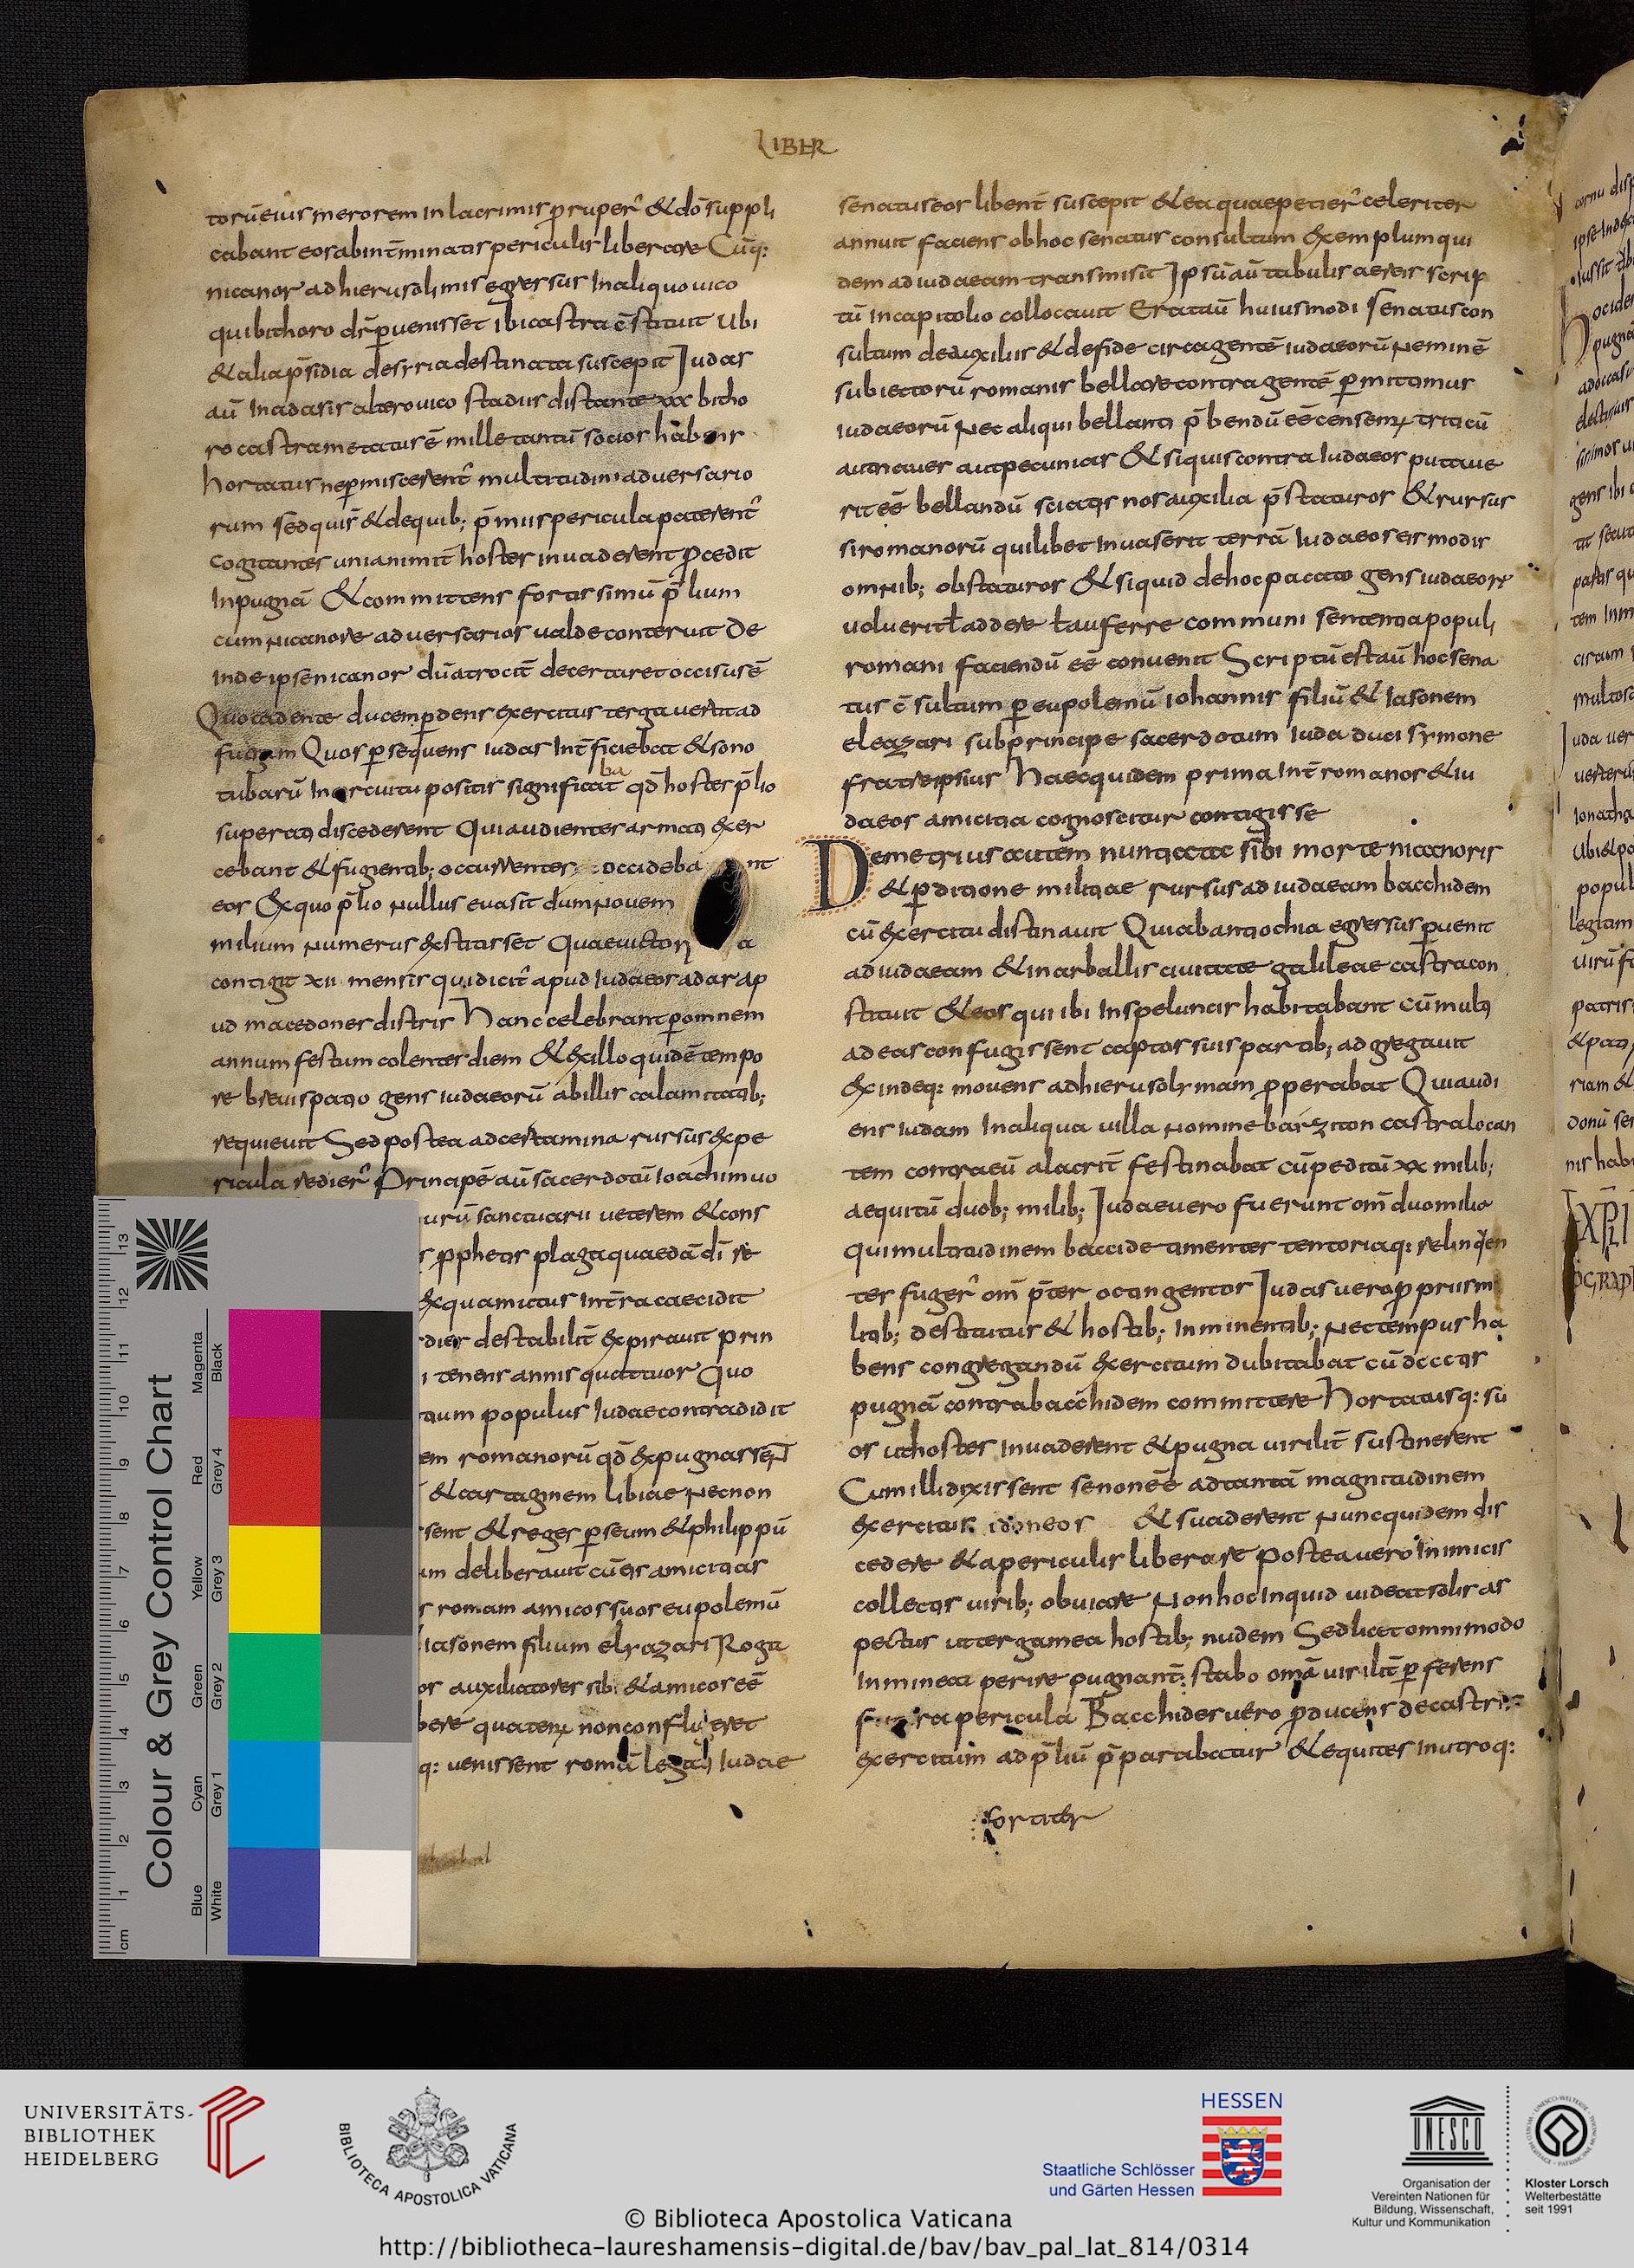 LIBER
torū eius merorem in lacrimis pruper̂ & dō suppli
cabant eos ab int̄minatis periculis liberare Cūq:
nicanor ad hierusolimis egressus In aliquo uico
qui bithoro dr̄ puenisset ibi castra c̄stituit Ubi
& alia p̄sidia de syria destinata suscepit Iudas
aū In adasis altero uico stadiis distante xxx bitho
ro castrametatus ē mille tantū socios habens
hortatus ne pmiscerent̂ multitudini aduersario
rum sed quis̄ & de quib; p̄miis pericula paterent̂
cogitantes unianimit̄ hostes inuaderent pcedit
In pugnā & committens fortissimū p̄lium
cum Nicanore aduersarios ualde conteruit De
inde ipse nicanor dū atrocit̄ decertaret occisus ē
Quo cadente ducem pdens exercitus terga uertit ad
fugam Quos psequens iudas Int̄ficiebat & sono
ba
tubarū In circuitu positis significat̄ qd̄ hostes p̄lio
superati discederent Qui audientes armati exer
cebant & fugientib; occurrentes occideba nt
eos Ex quo p̄lio Nullus euasit dum Nouem
milium Numerus extitisset Quae uictori a
contigit xii mensis qui dicit̂ apud Iudaeos adar ap
ud macedones distris Hanc celebrant p omnem
annum festum colentes diem & ex illo quidē tempo
re breui spatio gens iudaeorū ab illis calamitatib;
requieuit Sed postea ad certamina rursus & pe
ricula redier̂ Principē aū sacerdotū Ioachim uo
urū sanctuarii ueterem & cons
s pphetis plaga quaedā dī re
ex qua mictus Int̄ra caecidit
dies destabilit̄ expirauit prin
i tenens annis quattuor Quo
tum populus Iudae contradidit
em romanorū qd̄ expugnassent̄
& cartaginem libiae Necnon
sent & reges pseum & philippū
um deliberauit cū eis amicitias
s romam amicos suos eupolemū
Iasonem filium elyazari Roga
or auxiliatores sibi & amicos eē
bere quaten; non confligeret
q: uenissent romā legati Iudae
senatus eos libent̄ suscepit & ea quae petier̂ celeriter
annuit faciens ob hoc senatus consultum Exemplum qui
dem ad iudaeam transmisit Ipsū aū tabulis aereis scrip
tū In capitolio collocauit Erat aū huiusmodi Senatus con
sultum de auxiliis & de fide circa gentē iudaeorū Neminē
subiectorū romanis bellare contra gentē pmittimus
iudaeorū Nec aliqui bellanti p̄bendū eē censem; triticū
aut naues aut pecunias & si quis contra Iudaeos putaue
rit eē bellandū sciatis nos auxilia p̄staturos & rursus
si romanorū quilibet Inuaserit terrā Iudaeos eis modis
omnib; obstaturos & si quid de hoc pacato gens iudaeorꝝ
uoluerit ł addere ł auferre communi sententia populi
romani faciendū eē conuenit Scriptū est aū hoc sena
tus c̄sultum p eupolemū iohannis filiū & Iasonem
eleazari sub principe sacerdotum Iuda duci symone
fratre ipsius Haec quidem prima Int̄ romanos & iu
daeos amicitia cognoscitur contigisse
Demetrius autem nuntiatae sibi morte nicanoris
& pditione militiae rursus ad iudaeam bacchidem
cū exercitu distinauit Qui ab antiochia egressus puenit
ad iudaeam & in arballis ciuitate galileae castra con
stituit & eos qui ibi Inspeluncis habitabant cū multi
ad eas confugissent captos suis partib; adgregauit
exindeq: mouens ad hierusolymam pperabat Qui audi
ens iudam In aliqua uilla Nomine barziton castra locan
tem contra eū alacrit̄ festinabat cū peditū xx milib;
aequitū duob; milib; Iudae uero fuerunt om̄ duo milia
qui multitudinem baccide timentes tentoriaq: relinqen
tes fuger̂ om̄ p̄ter octingentos Iudas uero pprus mi
litib; destitutus & hostib; Inminentib; Nec tempus ha
bens congregandū exercitum dubitabat cū dccctis
pugnā contra bacchidem committere Hortatusq: su
os ut hostes Inuaderent & pugna uirilit̄ sustinerent
Cum illi dixissent se non eē ad tantā magnitudinem
exercitus idoneos & suaderent Nunc quidem dis
cedere & a periculis liberare Postea uero Inimicis
collectis uirib; obuiare Non hoc Inquid uideat solis as
pectus ut terga mea hostib; nudem Sed licet omnimodo
Inmineat perire pugnant̄; stabo om̄a uirilit̄ pferens
pericula Bacchides uero pducens de castris
exercitum ad p̄liū p̄parabatur & equites In utroq:
Colour & Grey Control Chart
Blue Cyan Green Yellow Red Magenta
White Grey 1 Grey 2 Grey 3 Grey 4 Black
cm 1 2 3 4 5 6 7 8 9 10 11 12 13
UNIVERSITÄTS-
BIBLIOTHEK
HEIDELBERG
BIBLIOTECA APOSTOLICA VATICANA
HESSEN
Staatliche Schlösser
und Gärten Hessen
UNESCO
Organisation der
Vereinten Nationen für
Bildung, Wissenschaft,
Kultur und Kommunikation
Kloster Lorsch
Welterbestätte
seit 1991
© Biblioteca Apostolica Vaticana
http://bibliotheca-laureshamensis-digital.de/bav/bav_pal_lat_814/0314